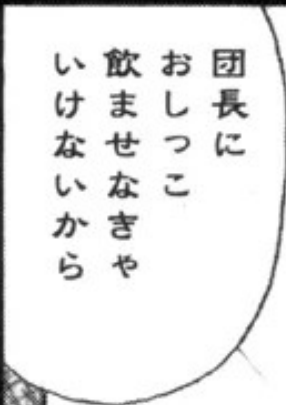 団長に
おしっこ
飲ませなきゃ
いけないから